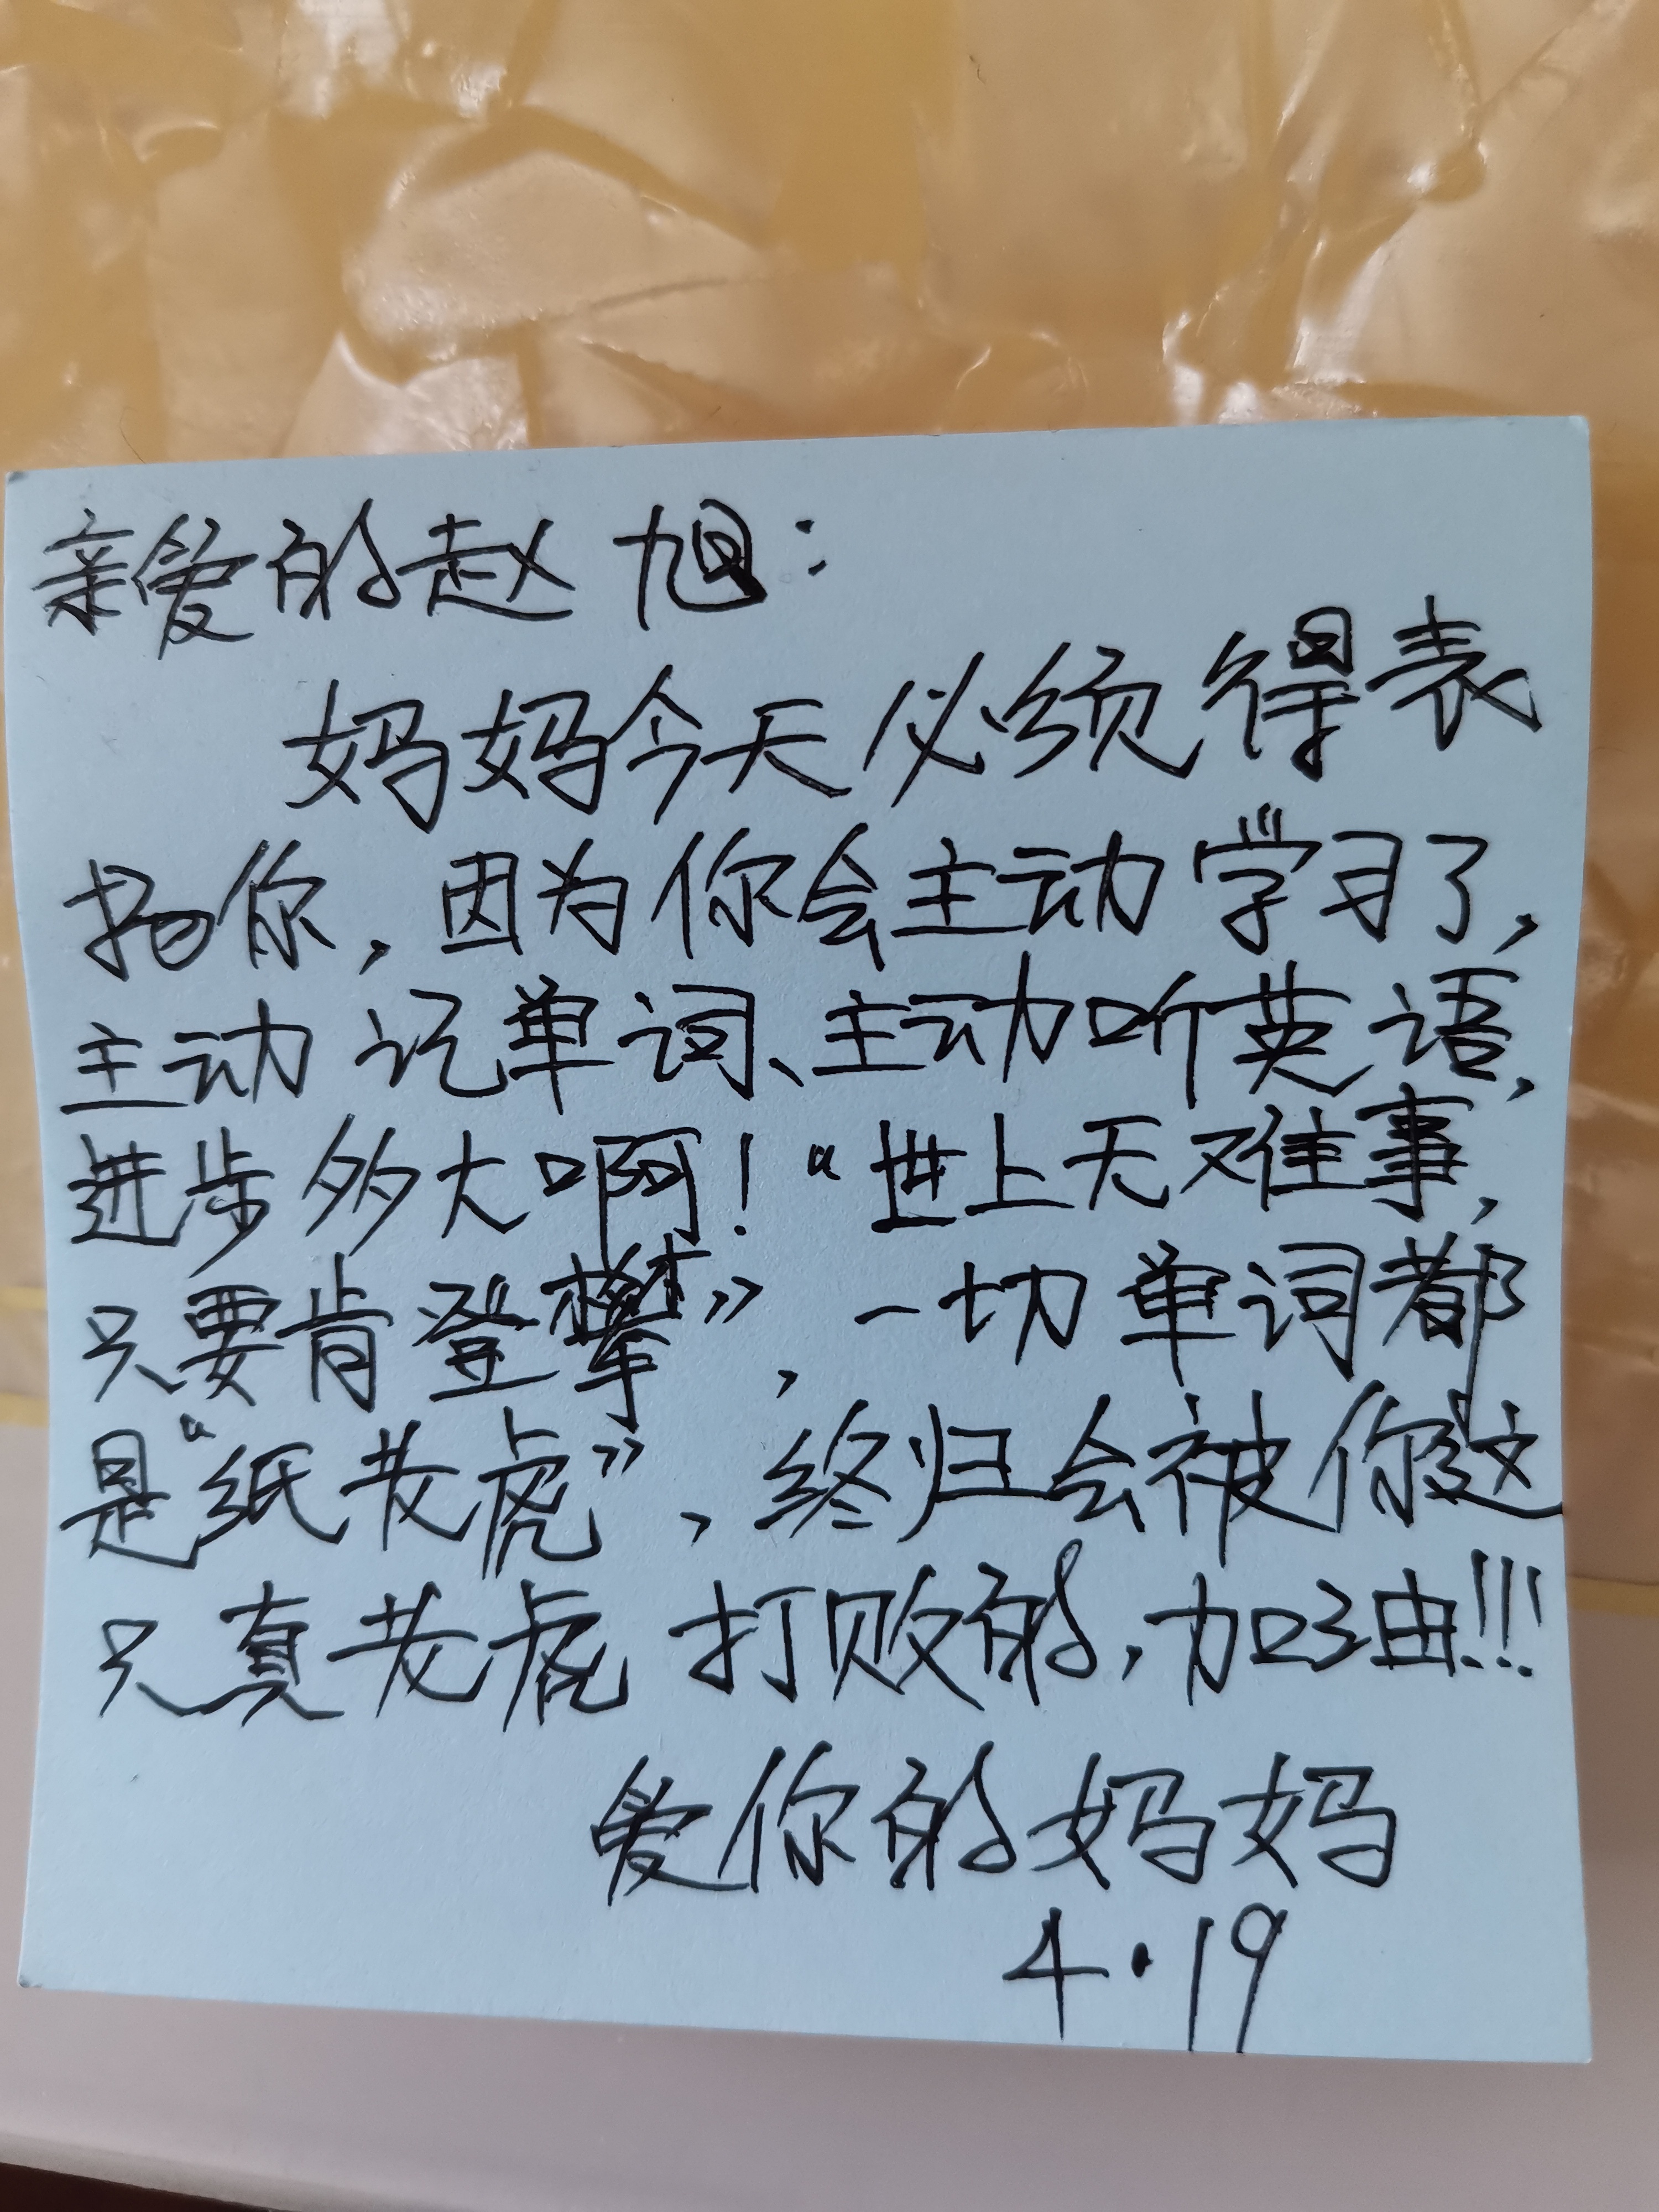 亲爱的赵旭：
妈妈今天必须得表
扬你，因为你会主动学习了，
主动记单词、主动听英语，
进步多大啊！“世上无难事，
只要肯登攀”，一切单词都
是“纸老虎”，终归会被你这
只真老虎打败的，加油!!!
爱你的妈妈
4·19